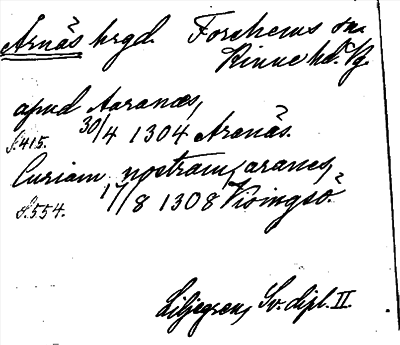 Årnäs hrgd. Forshems sn.
Kinne hd. Vg.
apud Aaranæs,
s. 415. 30/4 1304 Arenäs.
Curiam nostram, aranes,
s. 554. 17/8 1308 Visingsö.
Liljegren, Sv. dipl. II.